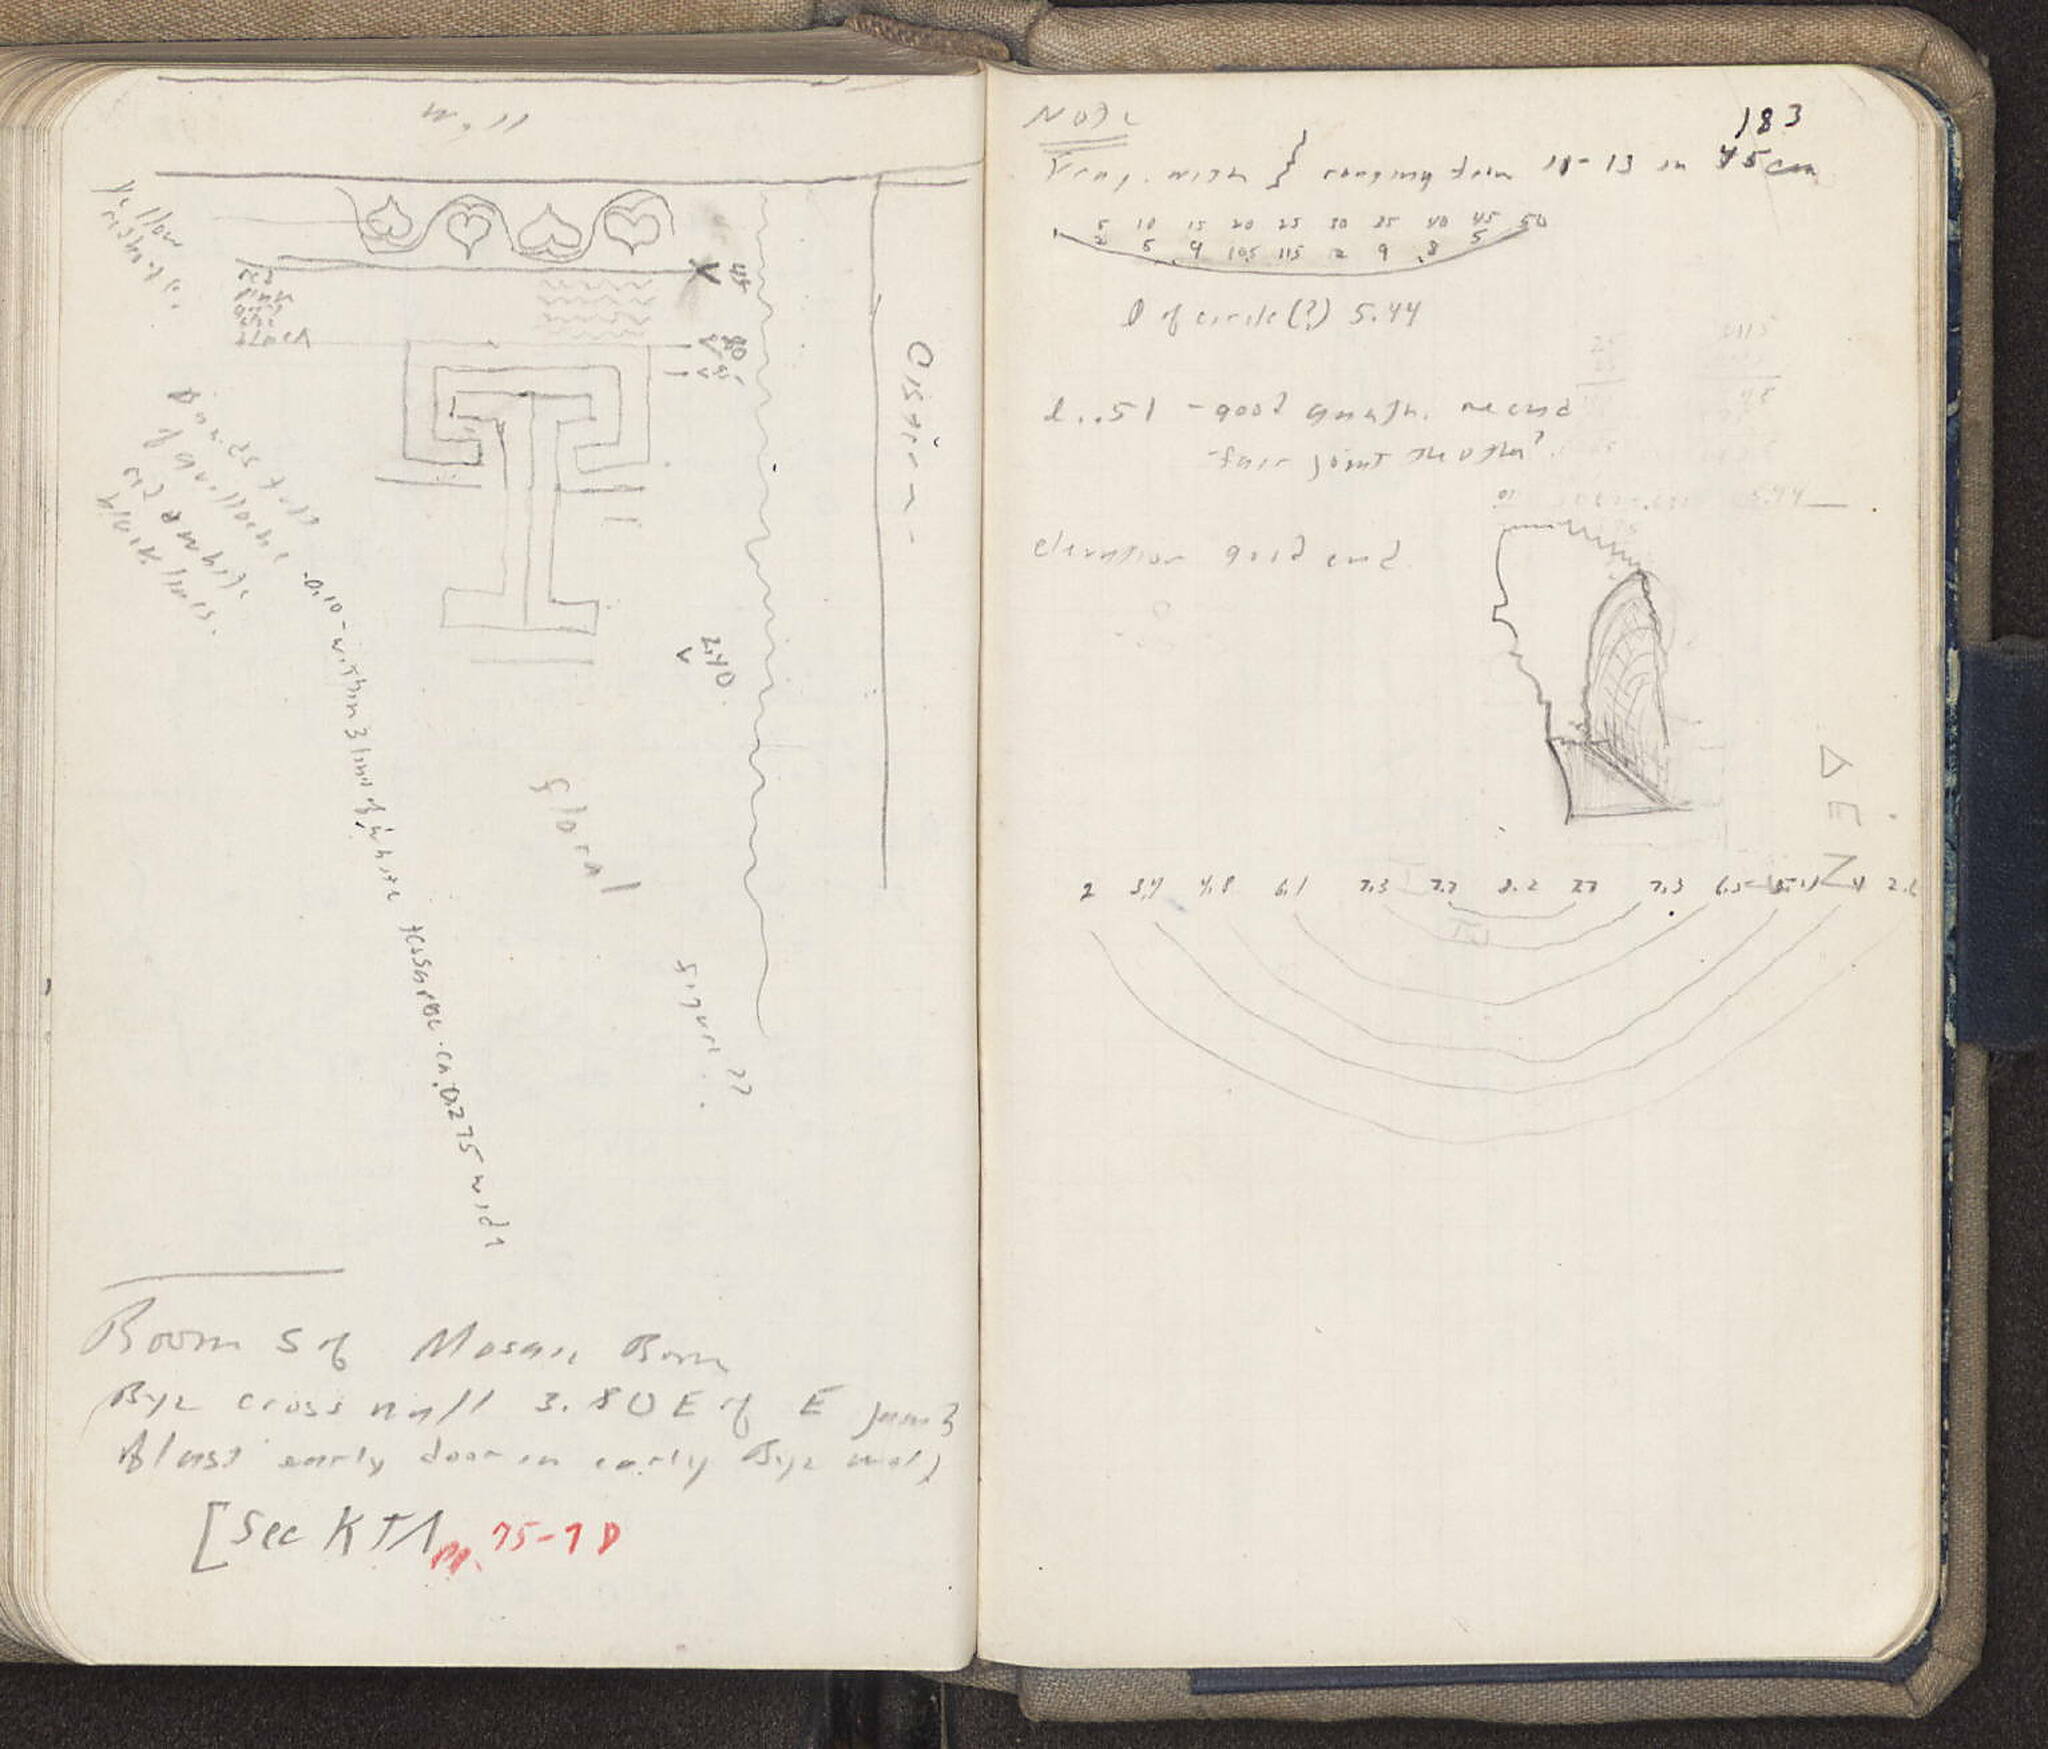 Wall
Yellow
red
pink
white
black
45
80
95
Cistern
of guilloche
and white
black lines.
0.10 - within 3 lines of white tesserae. ca. 0.275 wide
2.40
floral
figure??
Room S of Mosaic Room
Byz cross wall 3.80 E of E jamb
of last early door in early Byz wall
[See KTA pp. 75-7 D
183
Note
Frag. with } ranging from 11-13 in 45cm
5 10 15 20 25 30 35 40 45 50
2 5 9 10.5 11.5 12 9 8 5
D of circle (?) 5.44
l. .51 - good anath. one end
- fair joint the other?
elevation good end
Δ Ε Ζ
2 3.4 4.8 6.1 7.3 7.7 8.2 7.7 7.3 6.5 4 2.6